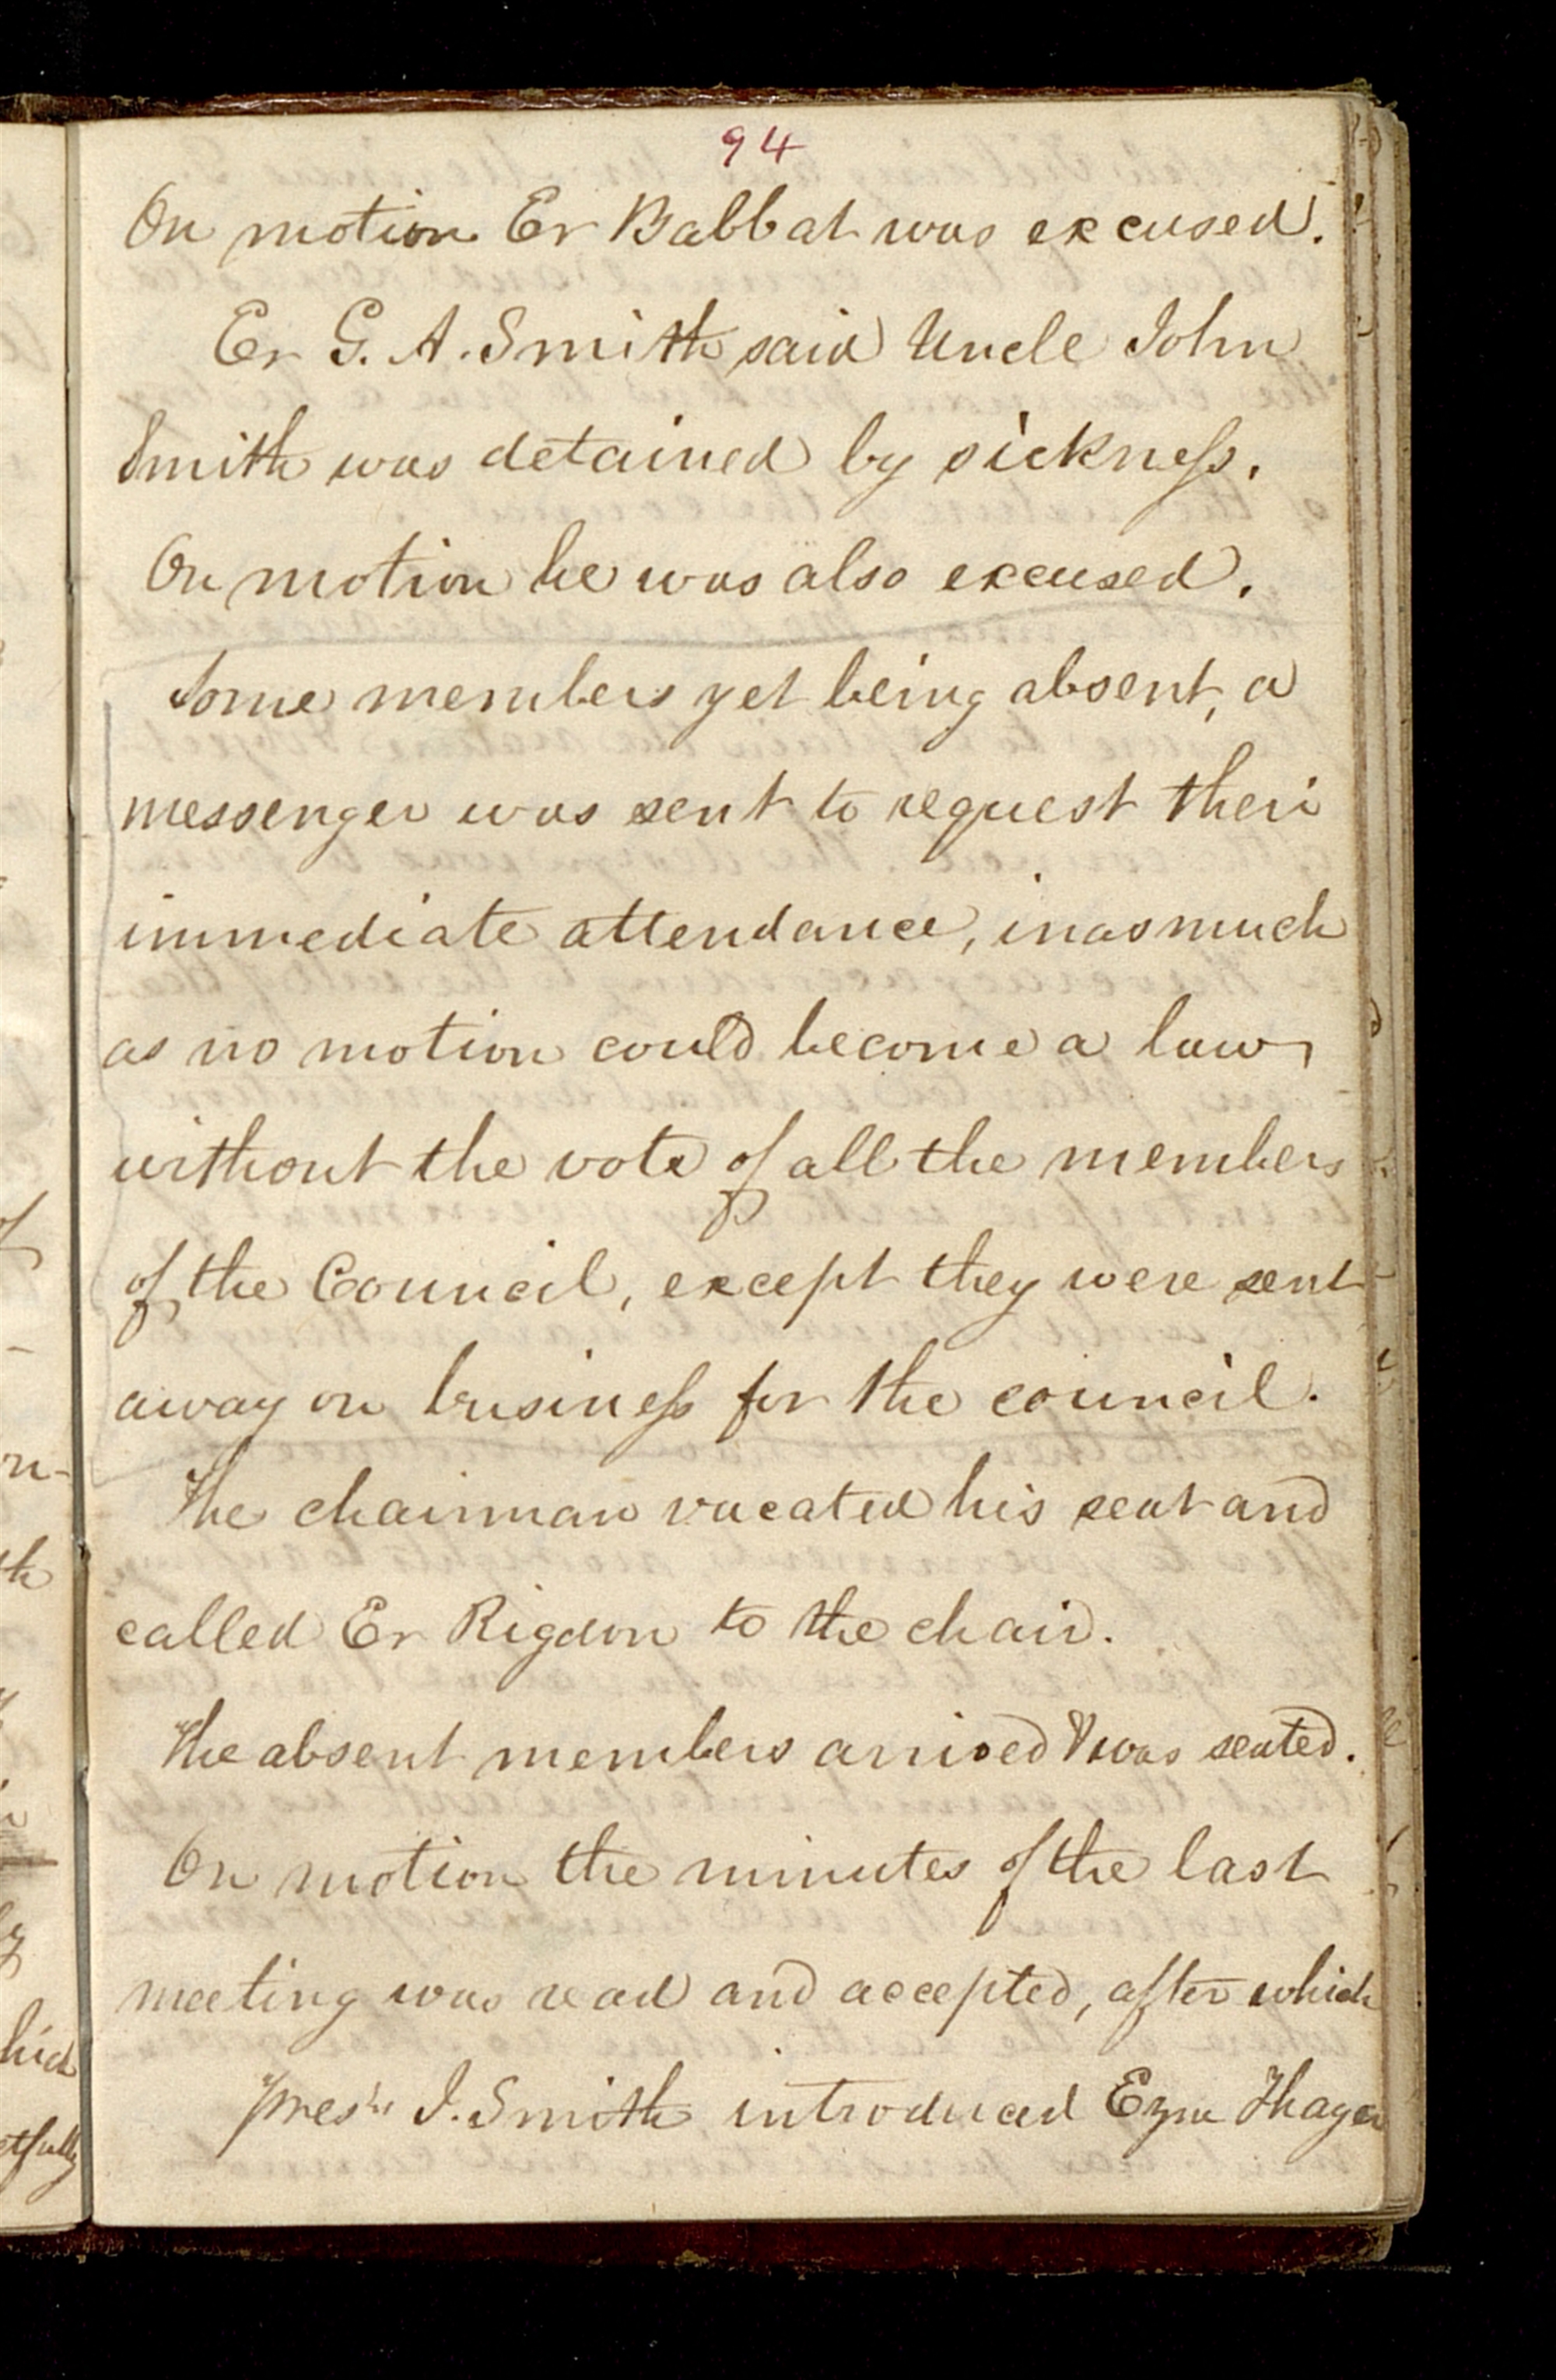 94
On motion Er Babbat was excused.
Er G. A. Smith said Uncle John
Smith was detained by sickness.
On motion he was also excused.
Some members yet being absent, a
messenger was sent to request their
immediate attendance, inasmuch
as no motion could become a law,
without the vote of all the members
of the Council, except they were sent
away on business for the council.
The chairman vacated his seat and
called Er Rigdon to the chair.
The absent members arrived & was seated.
On motion the minutes of the last
meeting was read and accepted, after which
Pres't J. Smith introduced Ezra Thayer